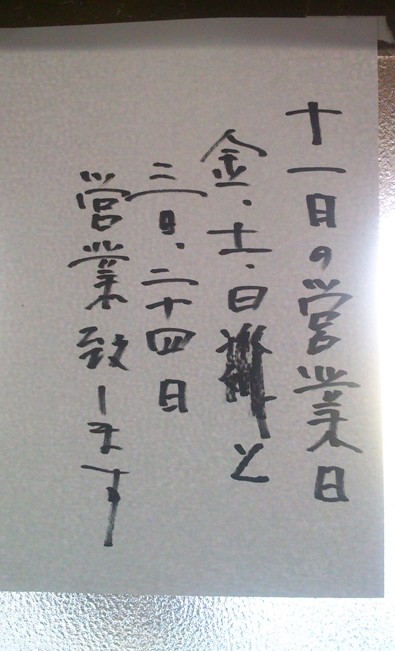 十一日の営業日
金、土、日と
三日、二十四日
営業致します